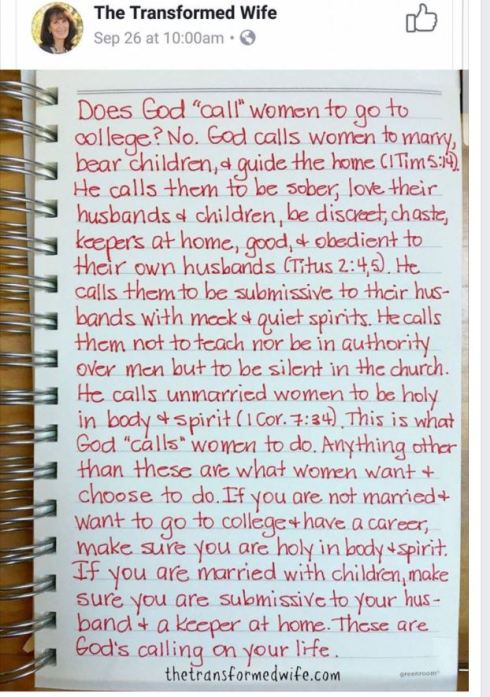 The Transformed Wife
Sep 26 at 10:00am ·
Does God "call" women to go to
college? No. God calls women to marry,
bear children, & guide the home (1 Tim 5:14).
He calls them to be sober, love their
husbands & children, be discreet, chaste,
keepers at home, good, & obedient to
their own husbands (Titus 2:4,5). He
calls them to be submissive to their hus-
bands with meek & quiet spirits. He calls
them not to teach nor be in authority
over men but to be silent in the church.
He calls unmarried women to be holy
in body & spirit (1 Cor. 7:34). This is what
God "calls" women to do. Anything other
than these are what women want &
choose to do. If you are not married &
want to go to college & have a career,
make sure you are holy in body & spirit.
If you are married with children, make
sure you are submissive to your hus-
band & a keeper at home. These are
God's calling on your life.
thetransformedwife.com
greenroom